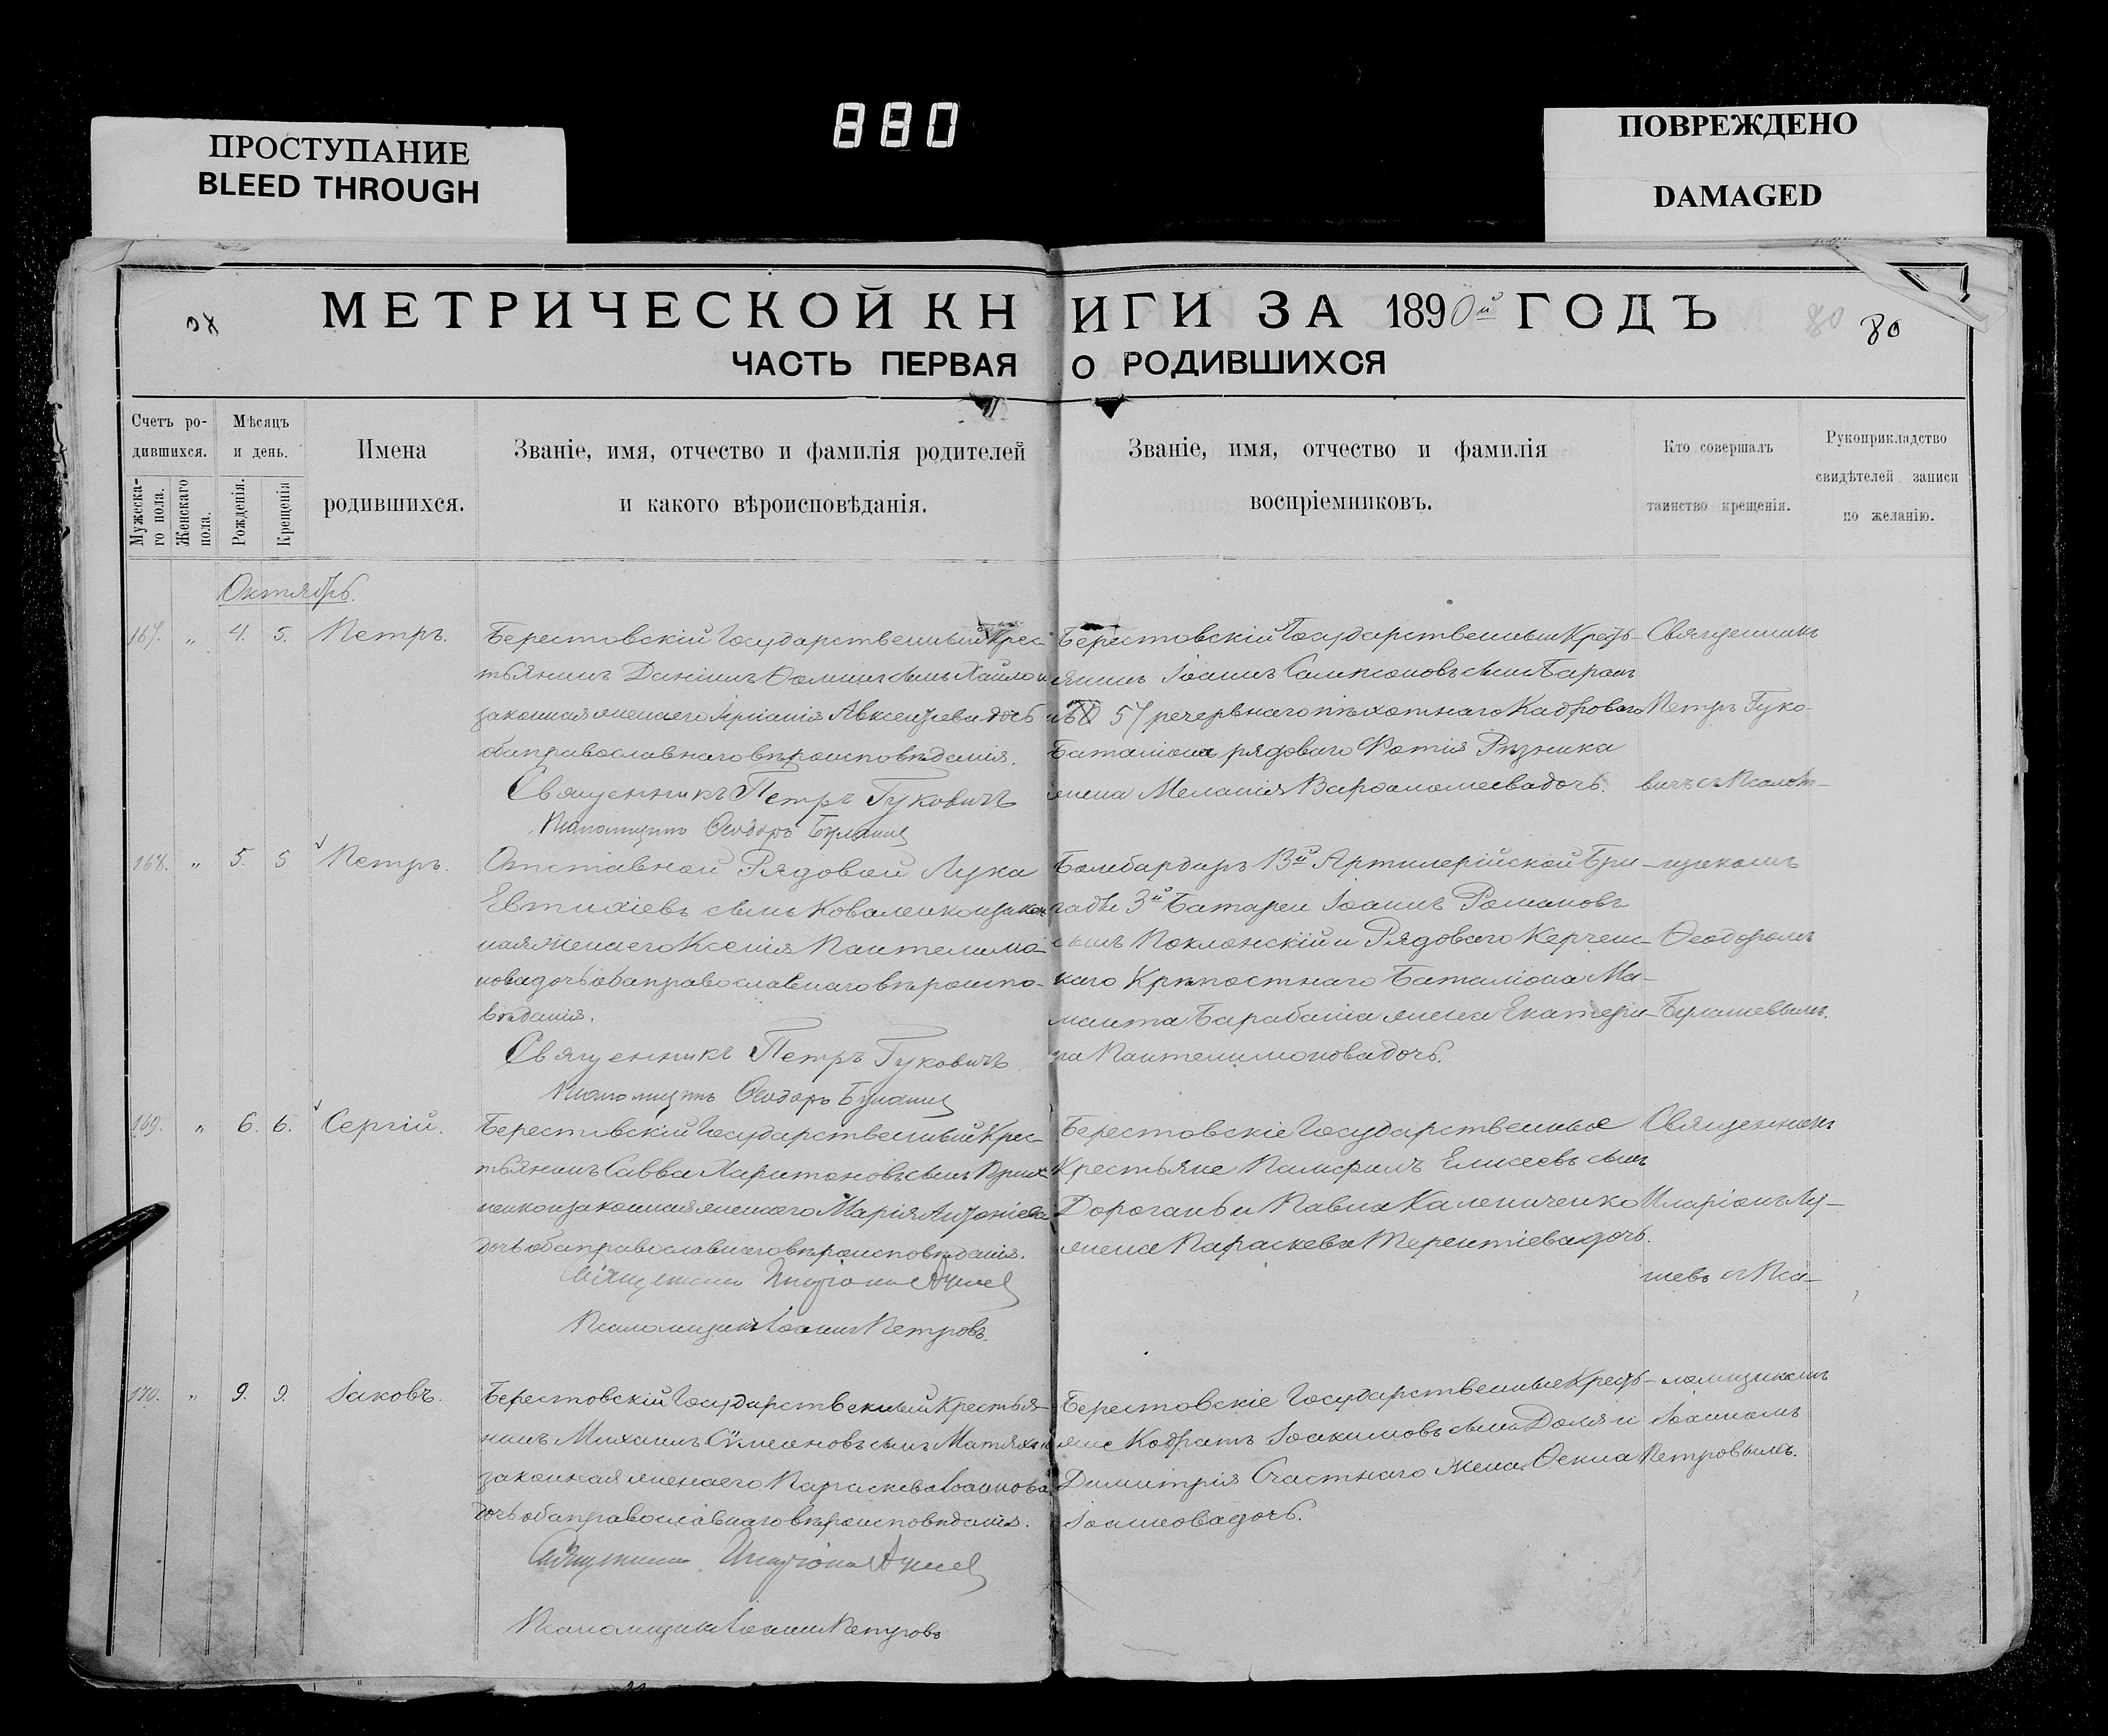 ПРОСТУПАНИЕ
BLEED THROUGH
880
ПОВРЕЖДЕНО
DAMAGED
МЕТРИЧЕСКОЙ КНИГИ ЗА 1890й ГОДЪ
80
80
ЧАСТЬ ПЕРВАЯ О РОДИВШИХСЯ
Счетъ ро-
дившихся.
Мужеска-
го пола.
Женскаго
пола.
Мѣсяцъ
и день.
Рожденія.
Крещенія
Имена
родившихся.
Званіе, имя, отчество и фамилія родителей
и какого вѣроисповѣданія.
Званіе, имя, отчество и фамилія
воспріемниковъ.
Кто совершалъ
таинство крещенія.
Рукоприкладство
свидѣтелей записи
по желанію.
Октябрь.
167. „ 4. 5. Петръ.
Берестовскій Государственный Крес-
тьянинъ Даніилъ Ѳоминъ сынъ Хайло и
законная жена его Авксентіева дочь
оба православнаго вѣроисповѣданія.
Священникъ Петръ Гуковичъ
Псаломщикъ Ѳеодоръ
Берестовскій Государственный Кресть-
янинъ Іоаннъ Сампсоновъ сынъ Баранъ
57 резервнаго пѣхотнаго Кадроваго
Баталіона рядоваго Фотія Рѣзника
жена Меланія Варѳоломеева дочь.
Священникъ
Петръ Гуко-
вичъ съ Псалом-
168. „ 5. 5 Петръ.
Отставной Рядовой Лука
Евтихіевъ сынъ Коваленко и закон-
ная жена его Ксенія Пантелимо-
нова дочь оба православнаго вѣроиспо-
вѣданія.
Священникъ Петръ Гуковичъ
Псаломщикъ Ѳеодоръ
Бомбардиръ 13й Артилерійской Бри-
гады 3й Батареи Іоаннъ Романовъ
сынъ Поклонскій и Рядоваго Керченс-
каго Крѣпостнаго Баталіона Ма-
манта Барабаша жена Екатери-
на Пантелимонова дочь.
щикомъ
Ѳеодоромъ
169. „ 6. 6. Сергій.
Берестовскій Государственный Крес-
тьянинъ Савва Харитоновъ сынъ
и законная жена его Марія Антоніева
дочь оба православнаго вѣроисповѣданія.
Священникъ Иларіонъ
Псаломщикъ Іоаннъ Петровъ.
Берестовскіе Государственные
Крестьяне Памфилъ Елисеевъ сынъ
Дорогань и Павла Калениченко
жена Параскева Терентіева дочь.
Священникъ
Иларіонъ Лу-
съ Пса-
170. „ 9. 9. Іаковъ.
Берестовскій Государственный Крестья-
нинъ Михаилъ Сѵмеоновъ сынъ Матяхъ и
законная жена его Параскева Іоаннова
дочь оба православнаго вѣроисповѣданія.
Священникъ Иларіонъ
Псаломщикъ Іоаннъ Петровъ
Берестовскіе Государственные Кресть-
яне Кодратъ Іоакимовъ сынъ Доля и
Димитрія Счастнаго жена Ѳекла
Іоаннова дочь.
ломщикомъ
Іоанномъ
Петровымъ.